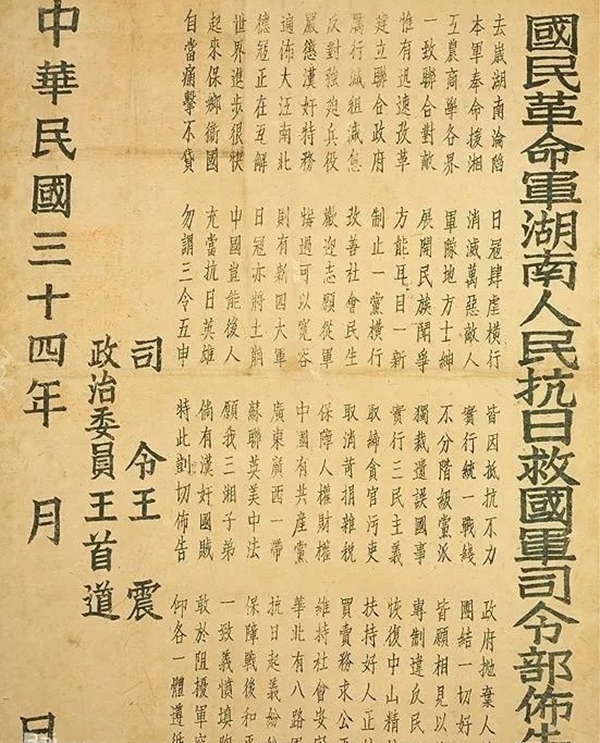 國民革命軍湖南人民抗日救國軍司令部佈告
去歲湖南淪陷 日寇肆虐橫行 皆因抵抗不力 政府拋棄人
本軍奉命援湘 消滅萬惡敵人 實行統一戰綫 團結一切好
工農商學各界 軍隊地方士紳 不分階級黨派 皆願相見以
一致聯合對敵 展開民族鬭爭 獨裁遺誤國事 專制違反民
惟有迅速改革 方能耳目一新 實行三民主義 恢復中山精
建立聯合政府 制止一黨橫行 取締貪官污吏 扶持好人正
厲行減租減息 改善社會民生 取消苛捐雜稅 買賣務求公
反對強拘兵役 歡迎志願從軍 保障人權財權 維持社會安
嚴懲漢奸特務 悔過可以寬容 中國有共產黨 華北有八路
遍佈大江南北 則有新四大軍 廣東廣西一帶 抗日起義紛
德寇正在瓦解 日寇亦將土崩 蘇聯英美中法 保障戰後和
世界進步很快 中國豈能後人 願我三湘子弟 一致義憤填
起來保鄉衛國 充當抗日英雄 倘有漢奸國賊 敢於阻擾軍
自當痛擊不貸 勿謂三令五申 特此剴切佈告 仰各一體遵
司令王震
政治委員王首道
中華民國三十四年 月 日